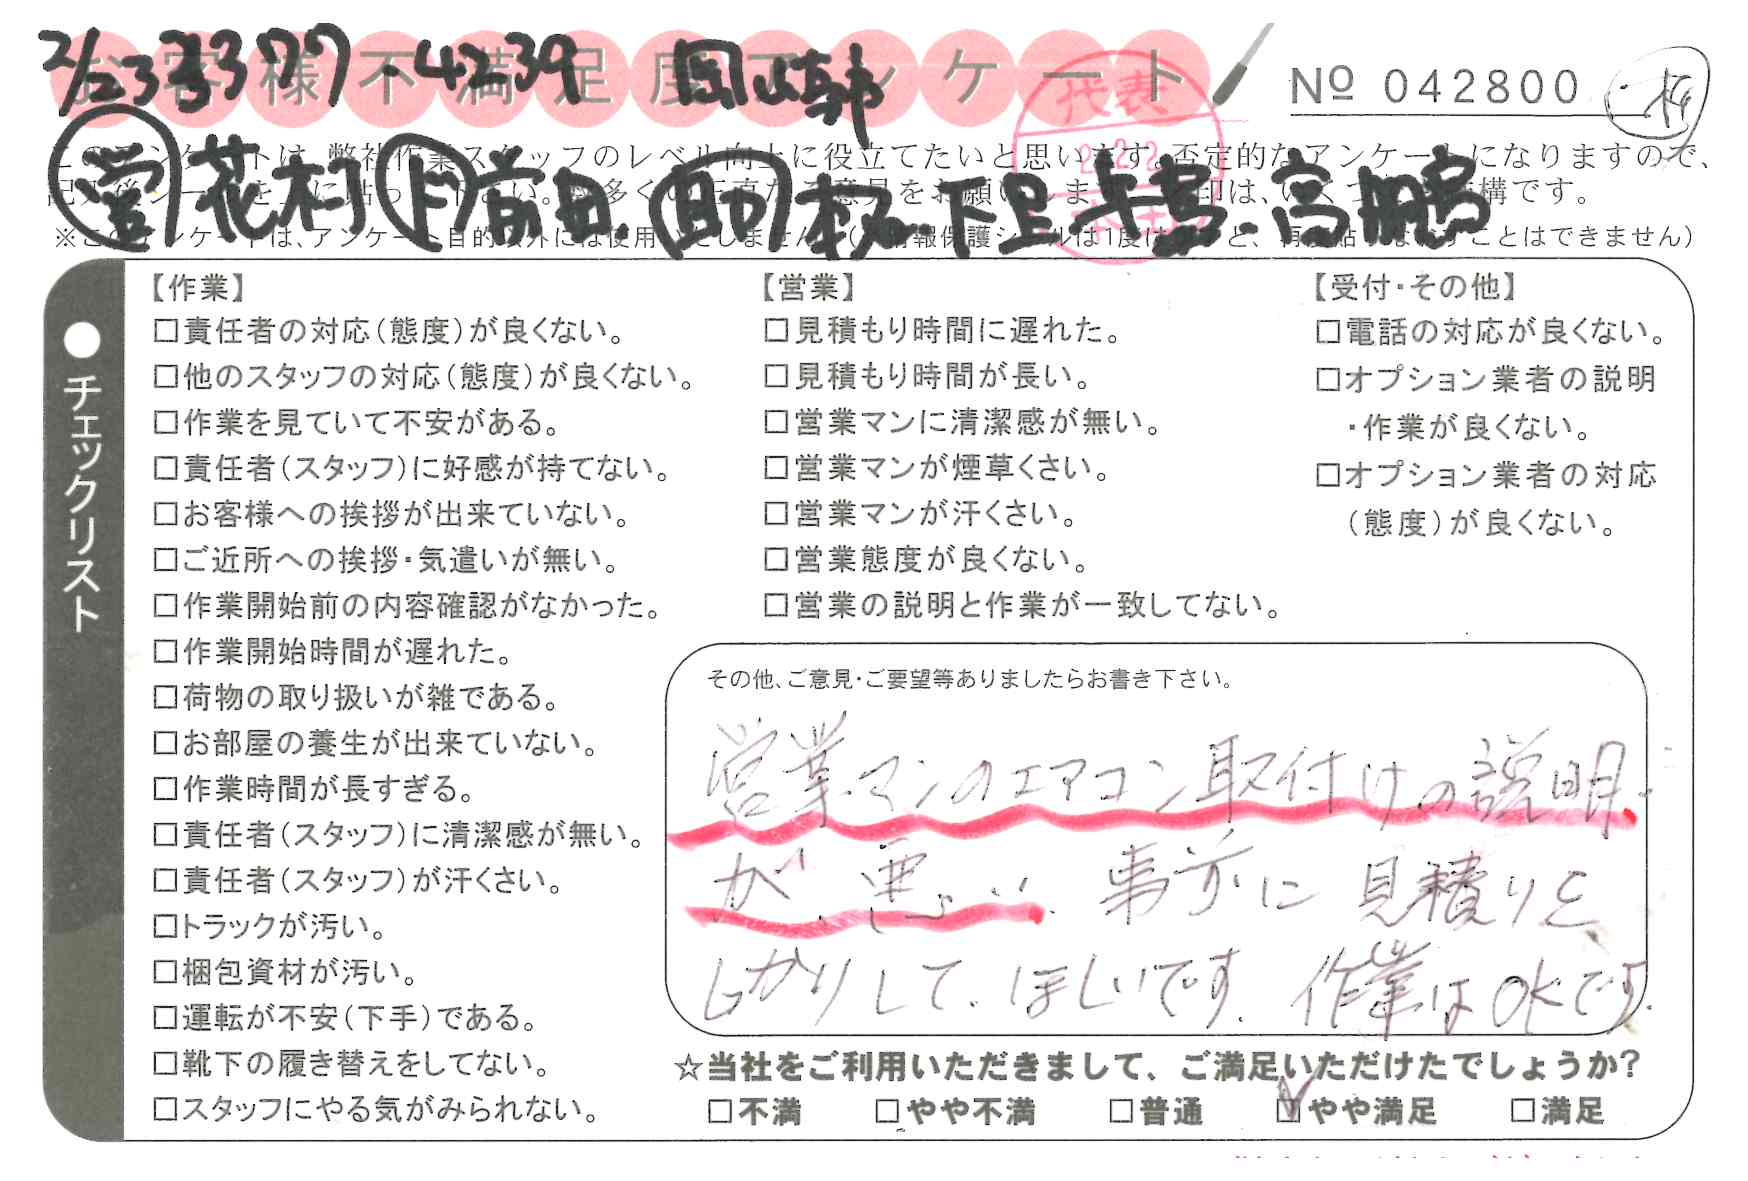 お客様不満足度アンケート
2/23 3377-4239 岡崎市
No 042800
営 花村 ド 前田 助 松下 平嶌 高鵬
このアンケートは、弊社作業スタッフのレベル向上に役立てたいと思います。否定的なアンケートになりますので、
代表
本社
【作業】
□責任者の対応(態度)が良くない。
□他のスタッフの対応(態度)が良くない。
□作業を見ていて不安がある。
□責任者(スタッフ)に好感が持てない。
□お客様への挨拶が出来ていない。
□ご近所への挨拶・気遣いが無い。
□作業開始前の内容確認がなかった。
□作業開始時間が遅れた。
□荷物の取り扱いが雑である。
□お部屋の養生が出来ていない。
□作業時間が長すぎる。
□責任者(スタッフ)に清潔感が無い。
□責任者(スタッフ)が汗くさい。
□トラックが汚い。
□梱包資材が汚い。
□運転が不安(下手)である。
□靴下の履き替えをしてない。
□スタッフにやる気がみられない。
●チェックリスト
【営業】
□見積もり時間に遅れた。
□見積もり時間が長い。
□営業マンに清潔感が無い。
□営業マンが煙草くさい。
□営業マンが汗くさい。
□営業態度が良くない。
□営業の説明と作業が一致してない。
【受付・その他】
□電話の対応が良くない。
□オプション業者の説明
・作業が良くない。
□オプション業者の対応
(態度)が良くない。
その他、ご意見・ご要望等ありましたらお書き下さい。
営業マンのエアコン取付けの説明
が悪い、事前に見積りを
しっかりして、ほしいです。作業はOKです。
☆当社をご利用いただきまして、ご満足いただけたでしょうか?
□不満 □やや不満 □普通 ☑やや満足 □満足